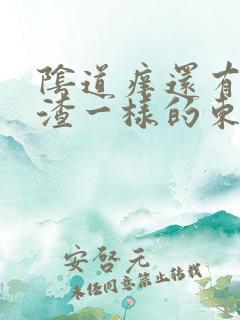 陰道癢還有
渣一樣的東
安啓元
未经同意禁止转载